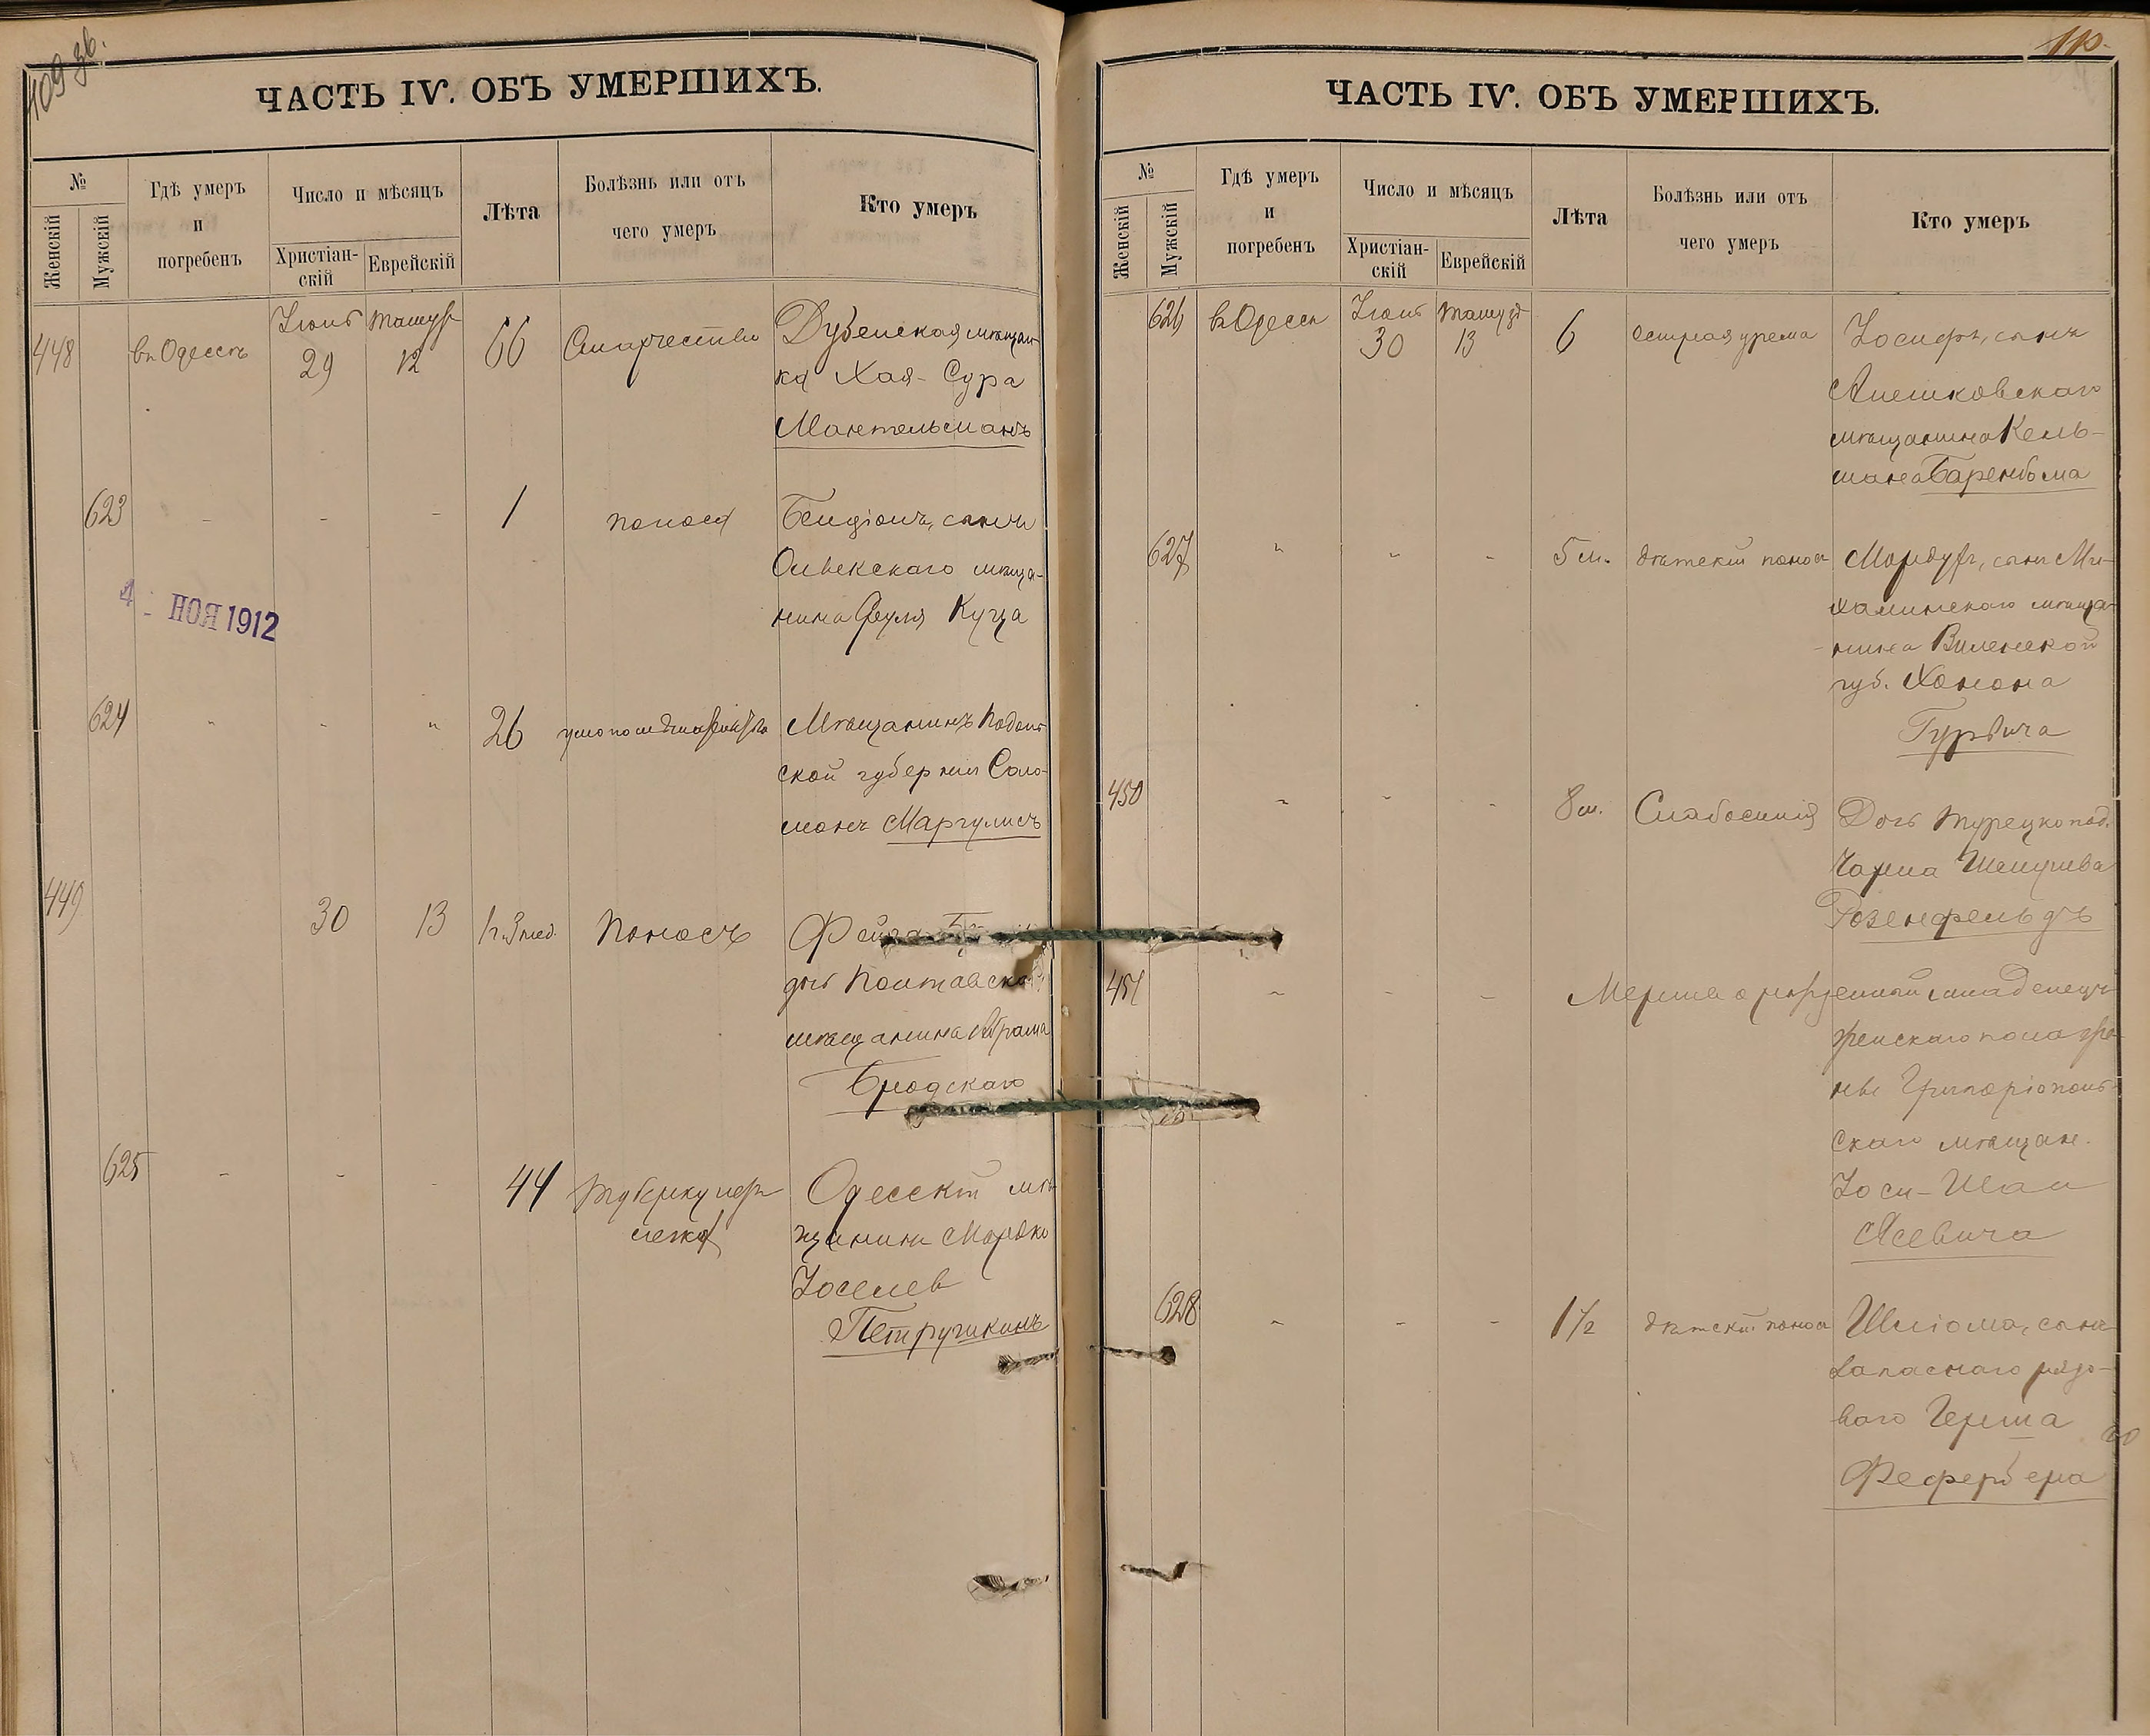 109 зв.
ЧАСТЬ IV. ОБЪ УМЕРШИХЪ.
№
Женскій
Мужскій
Гдѣ умеръ
и
погребенъ
Число и мѣсяцъ
Христіан-
скій
Еврейскій
Лѣта
Болѣзнь или отъ
чего умеръ
Кто умеръ
448 въ Одессѣ Іюнь 29 12 66 Старчество Дубенская мѣщан-
ка Хая-Сура
Мантельманъ
623 - - - 1 поносъ Бенціонъ, сынъ
мѣща-
нина Куца
4 - НОЯ 1912
624 " - " 26 Мѣщанинъ Подоль
ской губерніи Соло-
монъ Маргулисъ
449 30 13 Поносъ Фейга
дочь Полтавскаго
мѣщанина Абрама
Бродскаго
625 - - - 44 Туберкулезъ Одесскій мѣ-
легкихъ щанинъ Мордко
Іоселев
Петрушкинъ
110.
ЧАСТЬ IV. ОБЪ УМЕРШИХЪ.
№
Женскій
Мужскій
Гдѣ умеръ
и
погребенъ
Число и мѣсяцъ
Христіан-
скій
Еврейскій
Лѣта
Болѣзнь или отъ
чего умеръ
Кто умеръ
626 въ Одессѣ Іюнь 30 Тамузъ 13 6 острая урема Іосифъ, сынъ
Алешковскаго
мѣщанина Кель-
мана Баренбома
627 " - - 5 м. дѣтскій поносъ сынъ Ми-
халинскаго мѣща-
нина Виленской
губ. Ханона
Гурвича
450 - - - 8 м. Слабосилія Дочь турецкопод.
Розенфельдъ
451 - - - Мертворожденный младенецъ
женскаго пола
Григоріополь-
скаго мѣщан.
Асевича
628 - - - 1 1/2 дѣтскій поносъ Шліома, сынъ
запаснаго рядо-
ваго Герша
Фефербера